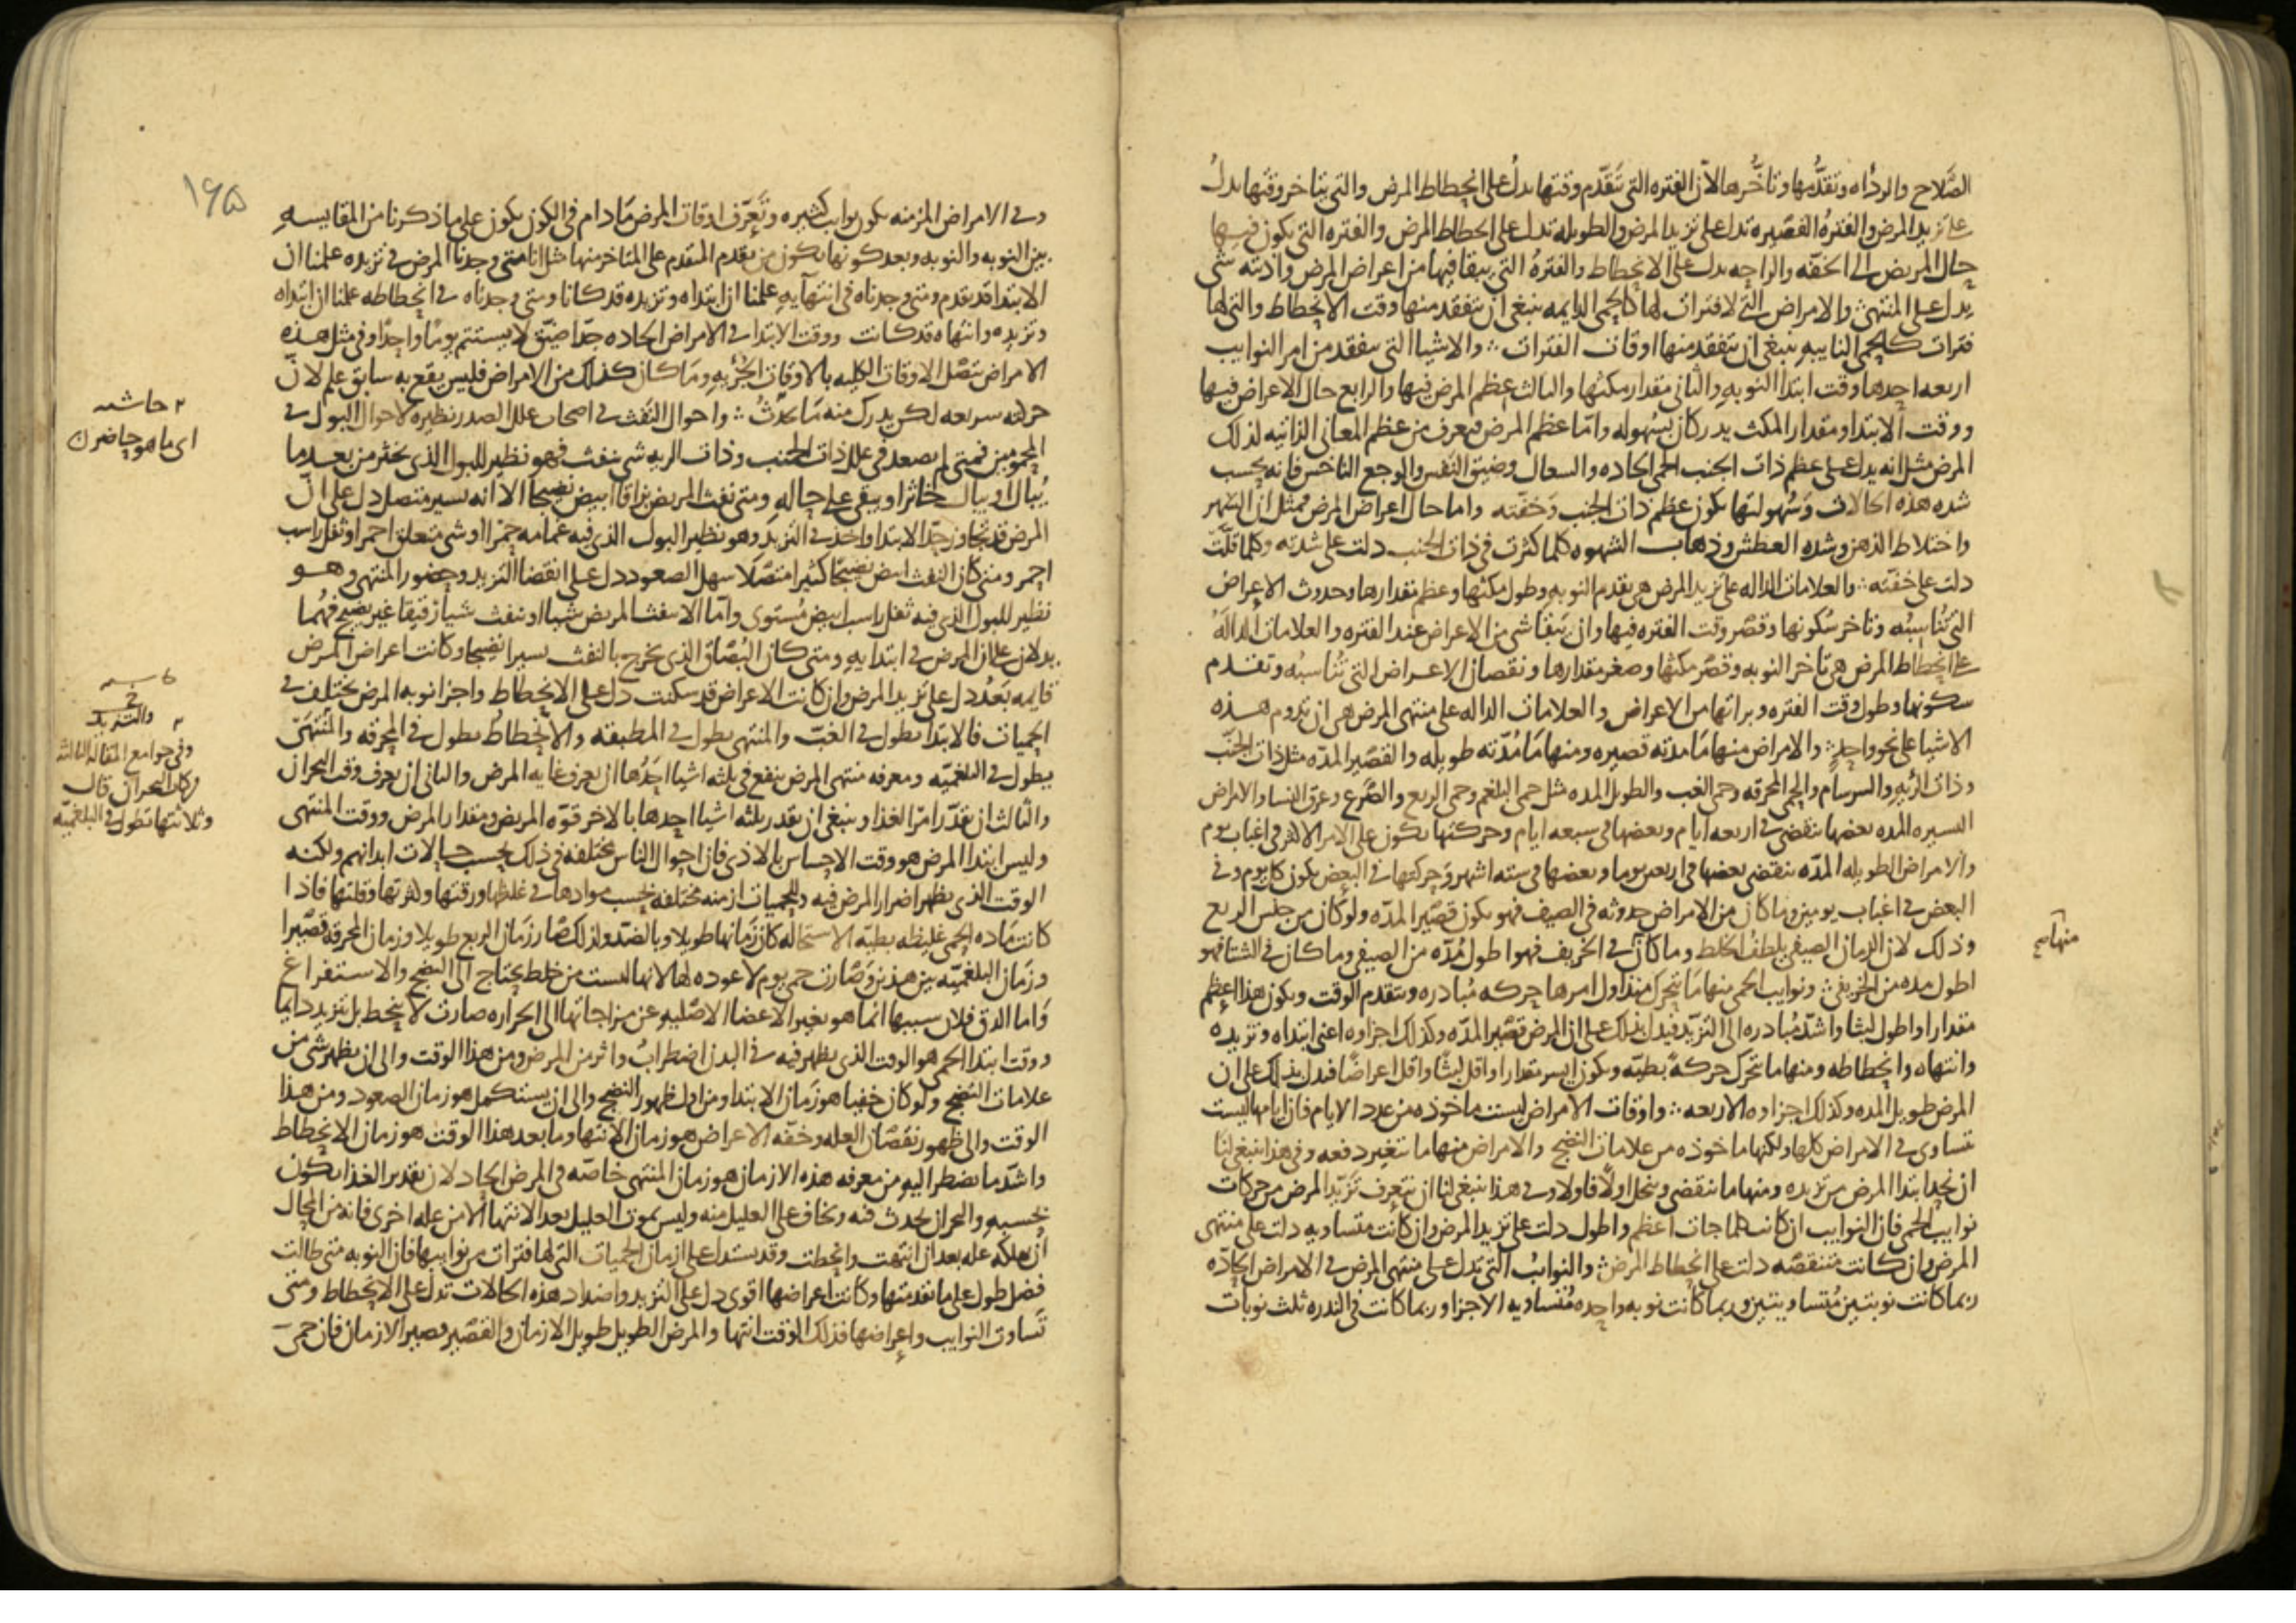 الصَّلاح والرداه وتقدُّمها وتأخُّرها لأن الفتره التي تتقدّم وقتها يدلُ على انحطاط المرض والتي يتاخر وقتها يدلُ
على تزيد المرض والفترهُ القصيره تدل على تزيد المرض والطويله تدل على انحطاط المرض والفتره التي يكون فيها
حال المريض الى الخفه والراحه يدل على الانحطاط والفترهُ التي يبقا فيها من اعراض المرض واذيته شى
يدل على المنتهى والامراض التي لا فترات لها كالحمى الدايمه ينبغي ان يتفقد منها وقت الانحطاط والتي لها
فترات كالحمى النايبه ينبغي ان يتفقد منها اوقات الفترات والاشيا التي يتفقد من امر النوايب
اربعه احدها وقت ابتدا النوبه والثاني مقدار مكثها والثالث عظم المرض فيها والرابع حال الاعراض فيها
ووقت الابتدا ومقدار المكث يدركان بسهوله واما عظم المرض فيعرف من عظم المعاني الذاتيه لذلك
المرض مثل انه يدل على عظم ذات الجنب الحمى الحاده والسعال وضيق النفس والوجع الناخس فانه بحسب
شده هذه الحالات وسُهولتها يكون عظم ذات الجنب وخفته واما حال اعراض المرض فمثل ان السهر
واختلاط الذهن وشده العطش وذهاب الشهوه كلما كثرت في ذات الجنب دلت على شدته وكلما قلّت
دلت على خفته والعلامات الداله على تزيد المرض هي تقدم النوبه وطول مكثها وعظم مقدارها وحدوث الاعراض
التي تُناسبُه وتاخر سُكونها وقصر وقت الفتره فيها وان يتبقا شى من الاعراض عند الفتره والعلامات الدالهُ
على انحطاط المرض هي تاخر النوبه وقصر مكثها وصغر مقدارها ونقصان الاعراض التي تُناسبُه وتقدم
سكونها وطول وقت الفتره وبراتها من الاعراض والعلامات الداله على منتهى المرض هي ان يدوم هذه
الاشيا على نحو واحدٍ والامراض منها مَا مدته قصيره ومنها مَا مُدّته طويله والقصير المدّه مثل ذات الجنب
وذات الريه والسرسام والحمى المحرقه وحمى الغب والطويل المده مثل حمى البلغم وحمى الربع والصَّرع وعرق النسا والامراض
اليسيره المده بعضها ينقضي في اربعه ايام وبعضها في سبعه ايام وحركتها يكون على الامر الاكثر في اغباب يوم
والامراض الطويله المدّه ينقضي بعضها في اربعين يوما وبعضها في سته اشهر وحركتها في البعض يكون كل يوم وفي
البعض في اغباب يومين وما كان من الامراض حدوثه في الصيف فهو يكون قصير المدّه ولو كان من جنس الربع
وذلك لان الزمان الصيفي يلطف الخلط وما كان في الخريف فهو اطول مُدّه من الصيفي وما كان في الشتا فهو
اطول مده من الخريفي ونوايب الحمى منها مَا يتحرك منذ اول امرها حركه مُبادره ويتقدم الوقت ويكون هذا اعظم
مقدارا واطول لبثا واشدّ مُبادره الى التزيّد فيدل بذلك على ان المرض قصير المدّه وكذلك اجزاوه اعني ابتداه وتزيده
وانتهاه وانحطاطه ومنها ما تحرك حركهً بطيّه ويكون ايسر مقدارا واقل لبثا واقل اعراضًا فيدل بذلك على ان
المرض طويل المده وكذلك اجزاوه الاربعه واوقات الامراض ليست ماخوذه من عدد الايام فان ايامها ليست
تتساوى في الامراض كلها ولكنها ماخوذه من علامات النضج والامراض منها ما تتغير دفعه وفي هذا ينبغي لنا
ان نجد ابتدا المرض من تزيده ومنها ما ينقضي وينحل اولًا فاولا وفي هذا ينبغي لنا ان نتعرف تزيّد المرض من حركات
نوايب الحمى فان النوايب ان كانت كلما جات اعظم واطول دلت على تزيد المرض وان كانت متساويه دلت على منتهى
المرض وان كانت متنقصه دلت على انحطاط المرض والنوايبُ التي تدل على منتهى المرض في الامراض الحادّه
ربما كانت نوبتين مُتساويتين وربما كانت نوبه واحده مُتساويه الاجزا وربما كانت في الندره ثلث نوبات
منها صح
١٩٥
وفي الامراض المزمنه يكون نوايب كثيره وتَعَرّف اوقات المرض مَا دام في الكون يكون على ما ذكرنا من المقايسهِ
بين النوبه والنوبه وبعد كونها يكون من تقدم المتقدم على المتاخر منها مثل انا متى وجدنا المرض في تزيده علمنا ان
الابتدا قد تقدم ومتى وجدناه في انتهايهِ علمنا ان ابتداه وتزيده قد كانا ومتى وجدناه في انحطاطه علمنا ان ابتداه
وتزيده وانتهاه قد كانت ووقت الابتدا في الامراض الحاده جدّا ضيّق لا يستتم يومًا واحدًا وفي مثل هذه
الامراض تتصل الاوقات الكليه بالاوقات الجُزئيه ومَا كان كذلك من الامراض فليس يقع به سابق علم لانّ
حركته سريعه لكن يدرك منه مَا يحدُثُ واحوال النفث في اصحاب علل الصدر نظيره لاحوال البول في
المحمومين فمتى لم يصعد في علل ذات الجنب وذات الريه شى ينفث فهو نظير للبول الذي يخثر من بعد ما
يُبال او يبال خاثرا ويبقى على حاله ومتى نفث المريض بزاقا ابيض نضيجًا الا انه يسير متصل دل على انّ
المرض قد تجاوز حدّ الابتدا واخذ في التزيد وهو نظير البول الذي فيه غمامه حمرا او شى متعلق احمر او ثفل راسب
احمر ومتى كان النفث ابيض نضيجًا كثيرا متصلا سهل الصعود دل على انقضا التزيد وحضور المنتهى وهو
نظير للبول الذي فيه ثفل راسب ابيض مُستوى وامّا الا ينفث المريض شيا او ينفث شيا رقيقا غير نضيج فهُما
يدلان على ان المرض في ابتدايهِ ومتى كان البُصاق الذي يخرج بالنفث يسيرا نضيجا وكانت اعراض المرض
قايمه بَعْدُ دل على تزيد المرض وان كانت الاعراض قد سكنت دل على الانحطاط واجزا نوبه المرض يختلف في
الحميات فالابتدا يطول في الغبّ والمنتهى يطول في المطبقه والانحطاطُ يطول في المحرقه والمُنتهى
يطول في البلغميّه ومعرفه منتهى المرض ينفع في ثلثه اشيا احدُها ان يعرف غايه المرض والثاني ان يعرف وقت البحران
والثالث ان يقدّر امرُ الغذا وينبغي ان يقدر بثلثه اشيا احدها بالاخر قوّه المريض ومقدار المرض ووقت المنتهى
وليس ابتدا المرض هو وقت الاحساس بالاذى فان احوال الناس مختلفه في ذلك بحسب حالات ابدانهم ولكنه
الوقت الذي يظهر اضرار المرض فيه وللحميات ازمنه مختلفه بحسب موادها في غلظها ورقتها وكثرتها وقلتها فاذا
كانت مَاده الحمى غليظه بطيّه الاستحاله كان زمانها طويلا وبالضدّ ولذلك صَار زمَان الربع طويلا وزمان المحرقه قصيرا
وزمَان البلغميّه بين هذين وصَارت حمى يوم لا عوده لها لانها ليست من خلط يحتاج الى النضج والاستفراغ
وَاما الدق فلان سببها انما هو تغير الاعضا الاصليه عن مزاجاتها الى الحراره صارت لا ينحط بل يتزيد دايما
ووقت ابتدا الحمى هو الوقت الذي يظهر فيه في البدن اضطرابُ واثر من المرض ومن هذا الوقت والى ان يظهر شى من
علامات النضج ولو كان خفيا هو زمَان الابتدا ومن اول ظهور النضج والى ان يستكمل هو زمان الصعود ومن هذا
الوقت والى ظهور نقصَان العله وخفّه الاعراض هو زمان الانتها وما بعد هذا الوقت هو زمان الانحطاط
واشدّ ما يضطر اليهِ من معرفه هذه الازمان هو زمان المنتهى خاصّه في المرض الحاد لان تقدير الغذا يكون
بحسبه والبحران يحدث فيه ويخاف على العليل منه وليس يموت العليل بعد الانتها الا من عله اخرى فانه من المحال
ان يهلكه عله بعد ان انتهت وانحطت وقد يستدل على ازمان الحميات التي لها فترات من نوايبها فان النوبه متى طالت
فضل طول على ما تقدمتها وكانت اعراضها اقوى دل على التزيد واضداد هذه الحالات تدل على الانحطاط ومتى
تَساوت النوايب واعراضها فذلك الوقت انتها والمرض الطويل طويل الازمان والقصير قصير الازمان فان حمى
حاشيه
اى ما هو حاضر
والتزيد
وفي جوامع المقاله الثالثه
من كتاب البحران قال
وثلاثتها تطول في البلغميّه